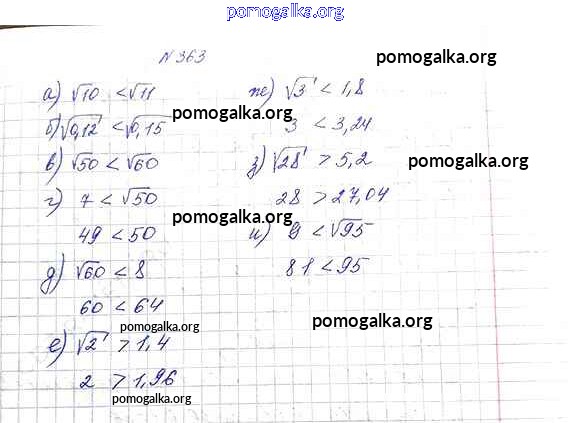 pomogalka.org
N 363
pomogalka.org
а) √10 < √11
pomogalka.org
б) √0,12 < √0,15
в) √50 < √60
г) 7 < √50
pomogalka.org
49 < 50
д) √60 < 8
60 < 64
pomogalka.org
е) √2 > 1,4
2 > 1,96
pomogalka.org
ж) √3 < 1,8
3 < 3,24
з) √28 > 5,2
pomogalka.org
28 > 27,04
и) 9 < √95
81 < 95
pomogalka.org